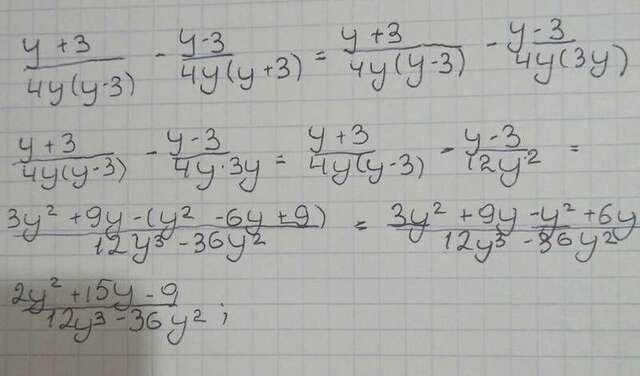 (y+3)/(4y(y-3)) - (y-3)/(4y(y+3)) = (y+3)/(4y(y-3)) - (y-3)/(4y(3y))
(y+3)/(4y(y-3)) - (y-3)/(4y·3y) = (y+3)/(4y(y-3)) - (y-3)/(12y²) =
(3y²+9y-(y²-6y+9))/(12y³-36y²) = (3y²+9y-y²+6y)/(12y³-36y²)
(2y²+15y-9)/(12y³-36y²);